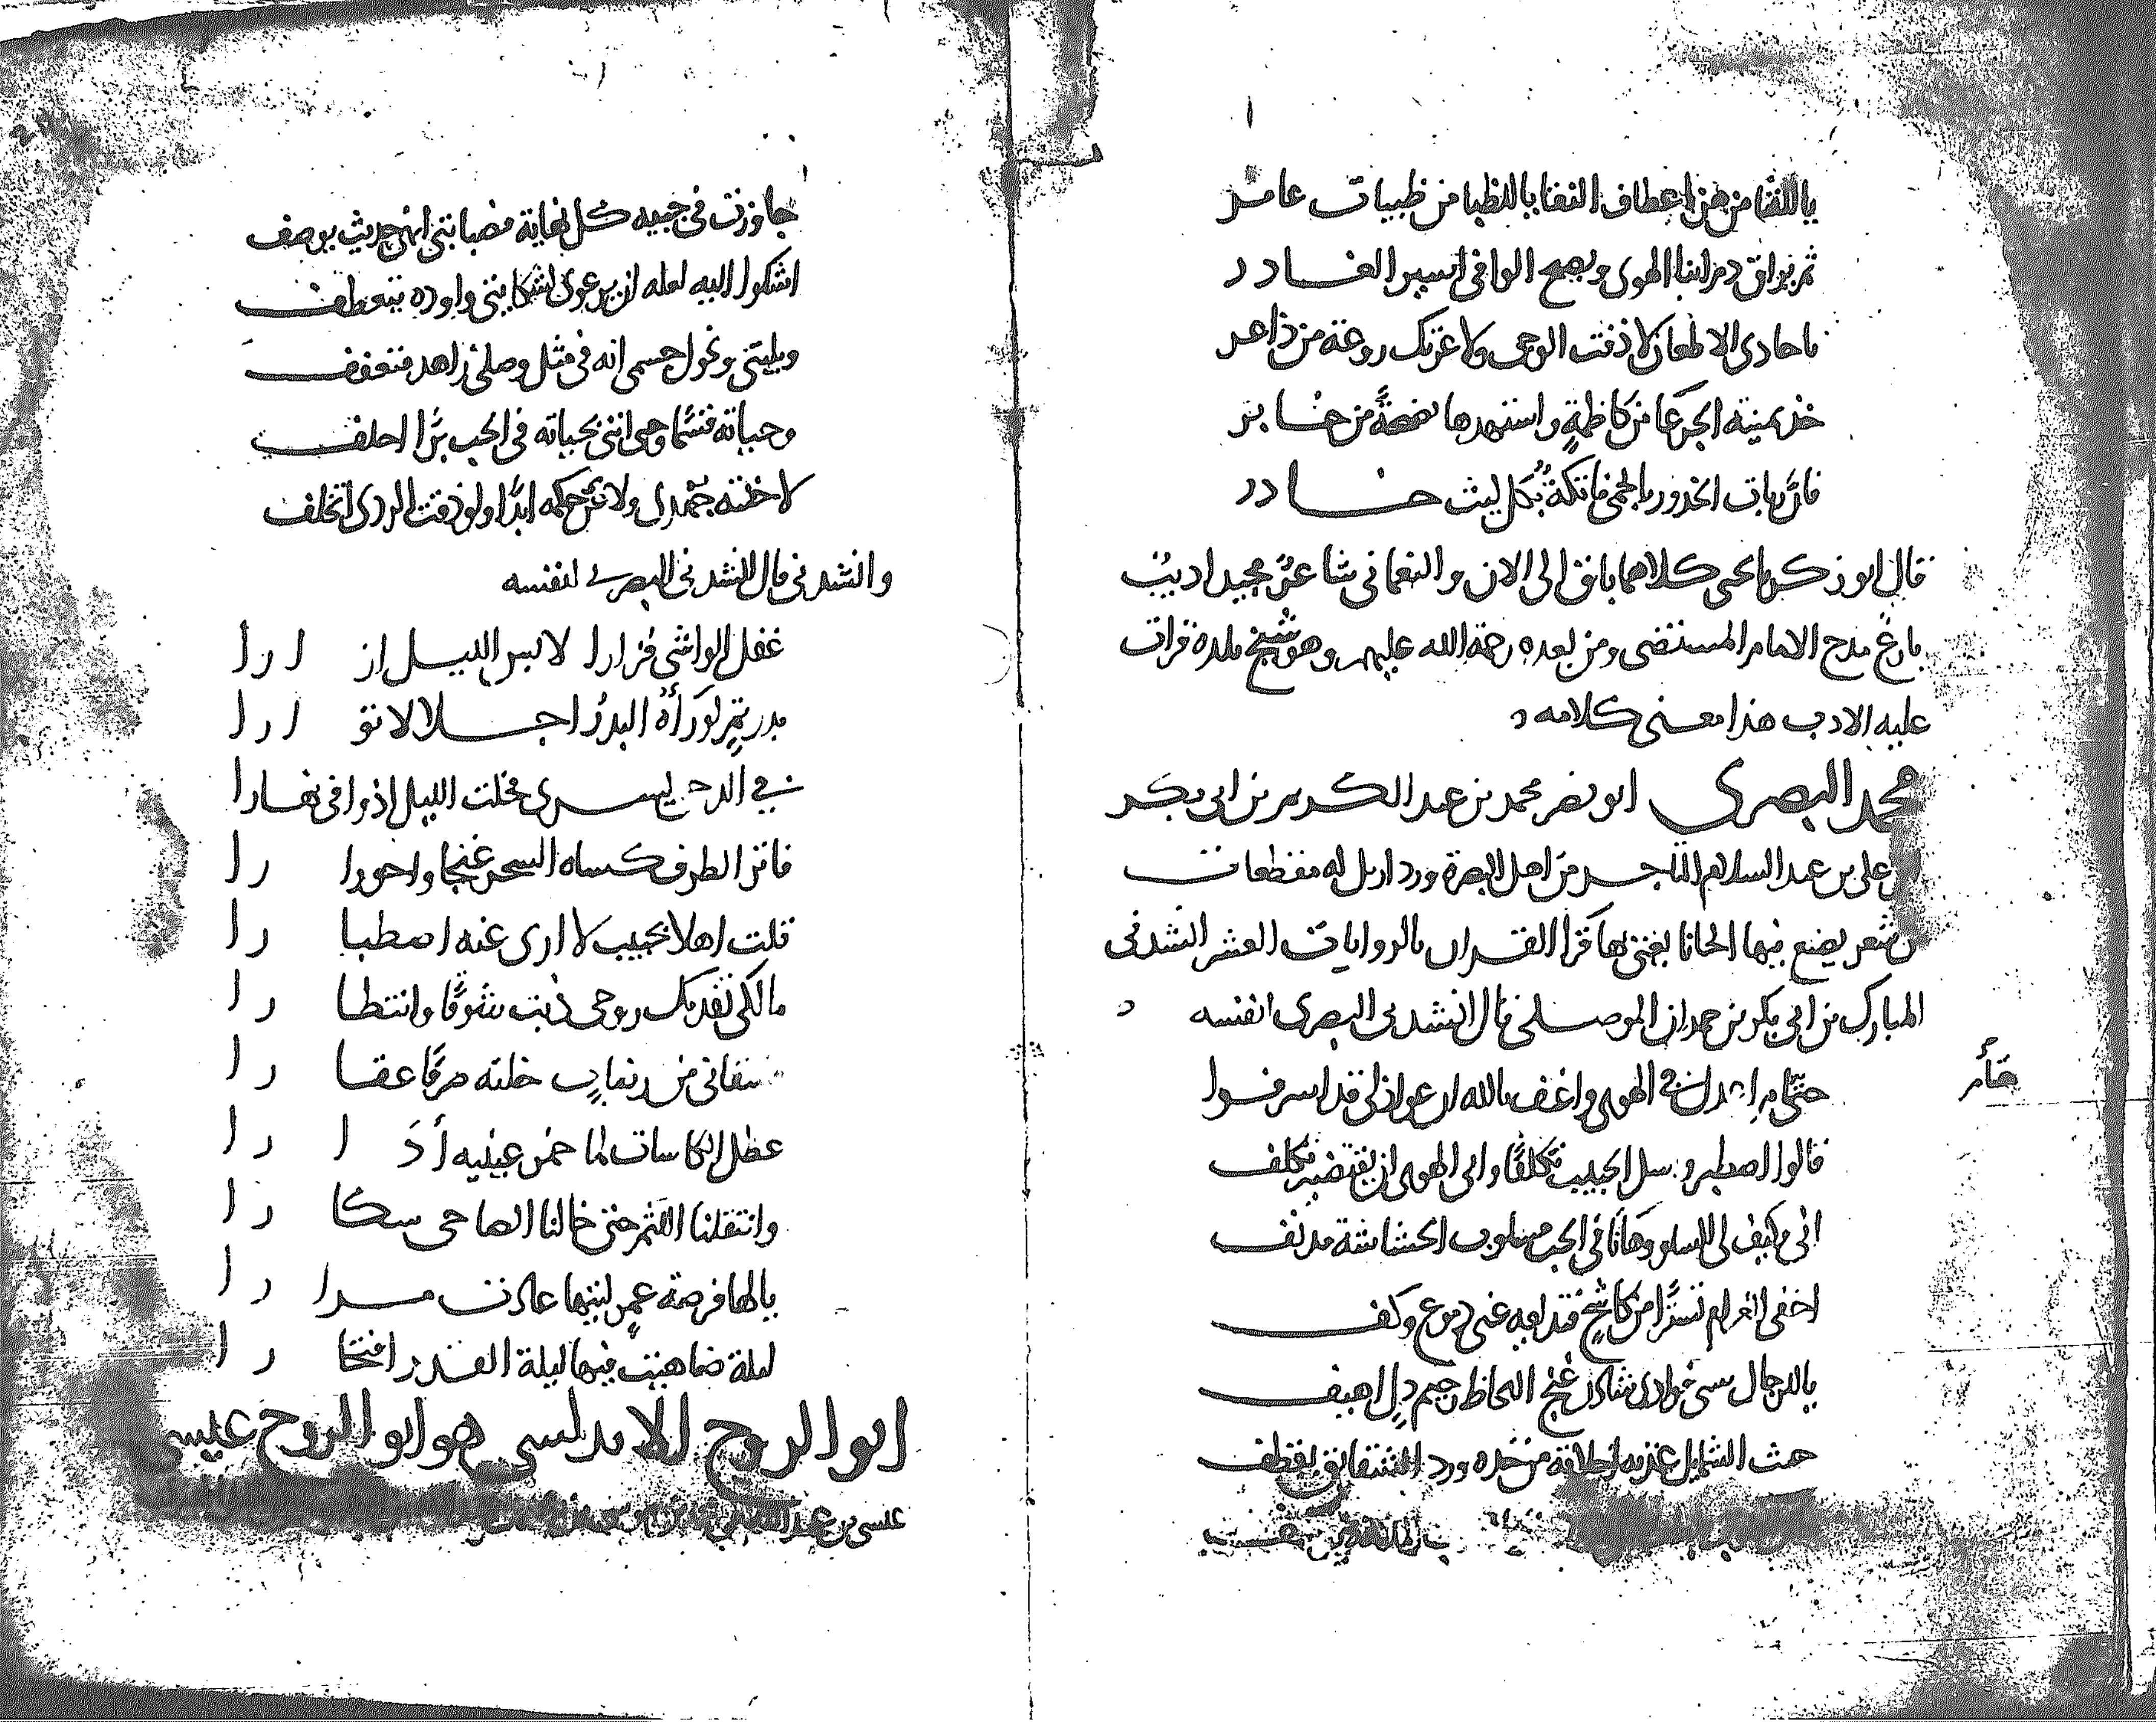 ياللقنا من هز اعطاف النقا ياللظبا من ظبيات عامر
ثم يراق دمرابنا الهوى ويصبح الوافي اسير الغادر
يا حادي الاظعان لا ذقت الوجى ولا عرتك روعة من ذاعر
خذ يمنة الجرعا من كاظمة واستهدها نفحة من حاجر
فان ربات الخدور بالحمى فاتكة بكل ليث خادر
قال ابو زكريا يحيى كلاهما باق الى الان والنعماني شاعر مجيد اديب
بارع مدح الامام المستضي ومن بعده رحمة الله عليهم وهو شيخ بلده قرات
عليه الادب هذا معنى كلامه
محمد البصري ابو نصر محمد بن عبد الكريم بن ابي بكر
بن علي بن عبد السلام التاجر من اهل البصرة ورد اربل له مقطعات
من شعر يصنع فيها الحانا يغني بها قرأ القران بالروايات العشر انشدني
المبارك بن ابي بكر بن حمدان الموصلي قال انشدني البصري لنفسه
حتام
حتام في الهوى واعنف بالله ان عواذلي قد اسرفوا
قالوا اصطبر وسل الحبيب تكلفا وابى الهوى ان يقتضيه تكلف
انى وكيف لي السلو وها انا في الحب مسلوب الحشاشة مدنف
اخفي الغرام تسترا من كاشح فتذيعه عني دموع وكف
ياللرجال سبى فوادي شادن غنج اللحاظ رخيم دل اهيف
خنث الشمايل من خده ورد الشقائق يقطف
جاوزت في حبيه كل نهاية فصبابتي انهى حديث يوصف
اشكوا اليه لعله ان يرعوي لشكايتي واوده يتعطف
وبليتي ونحول جسمي انه في مثل وصلي زاهد متعفف
وحياته قسما وحسبي انني بحياته في الحب برا احلف
لا خنته جهدي ولا عن حكمه ابدا ولو ذقت الردى اتخلف
وانشدني قال انشدني البصري لنفسه
غفل الواشي فزارا لابس الليل ازارا
بدر تم لو رأه البدر اجلالا توارا
في الدجى يسري فخلت الليل اذ وافى نهارا
فاتر الطرف كساه السحر غنجا واحورارا
قلت اهلا بحبيب لا ارى عنه اصطبارا
مالكي تفديك روحي ذبت شوقا وانتظارا
فسقاني من رضاب خلته صرفا عقارا
عطل الكاسات لما خمر عينيه أدارا
وانتقلنا اللثم حتى خالنا الصاحي سكارا
يالها فرصة عمر ليتها عادت مرارا
ليلة ضاهيت فيها ليلة القدر افتخارا
ابو الروح الاندلسي هو ابو الروح عيسى
عيسى بن عبد الله بن محمد بن